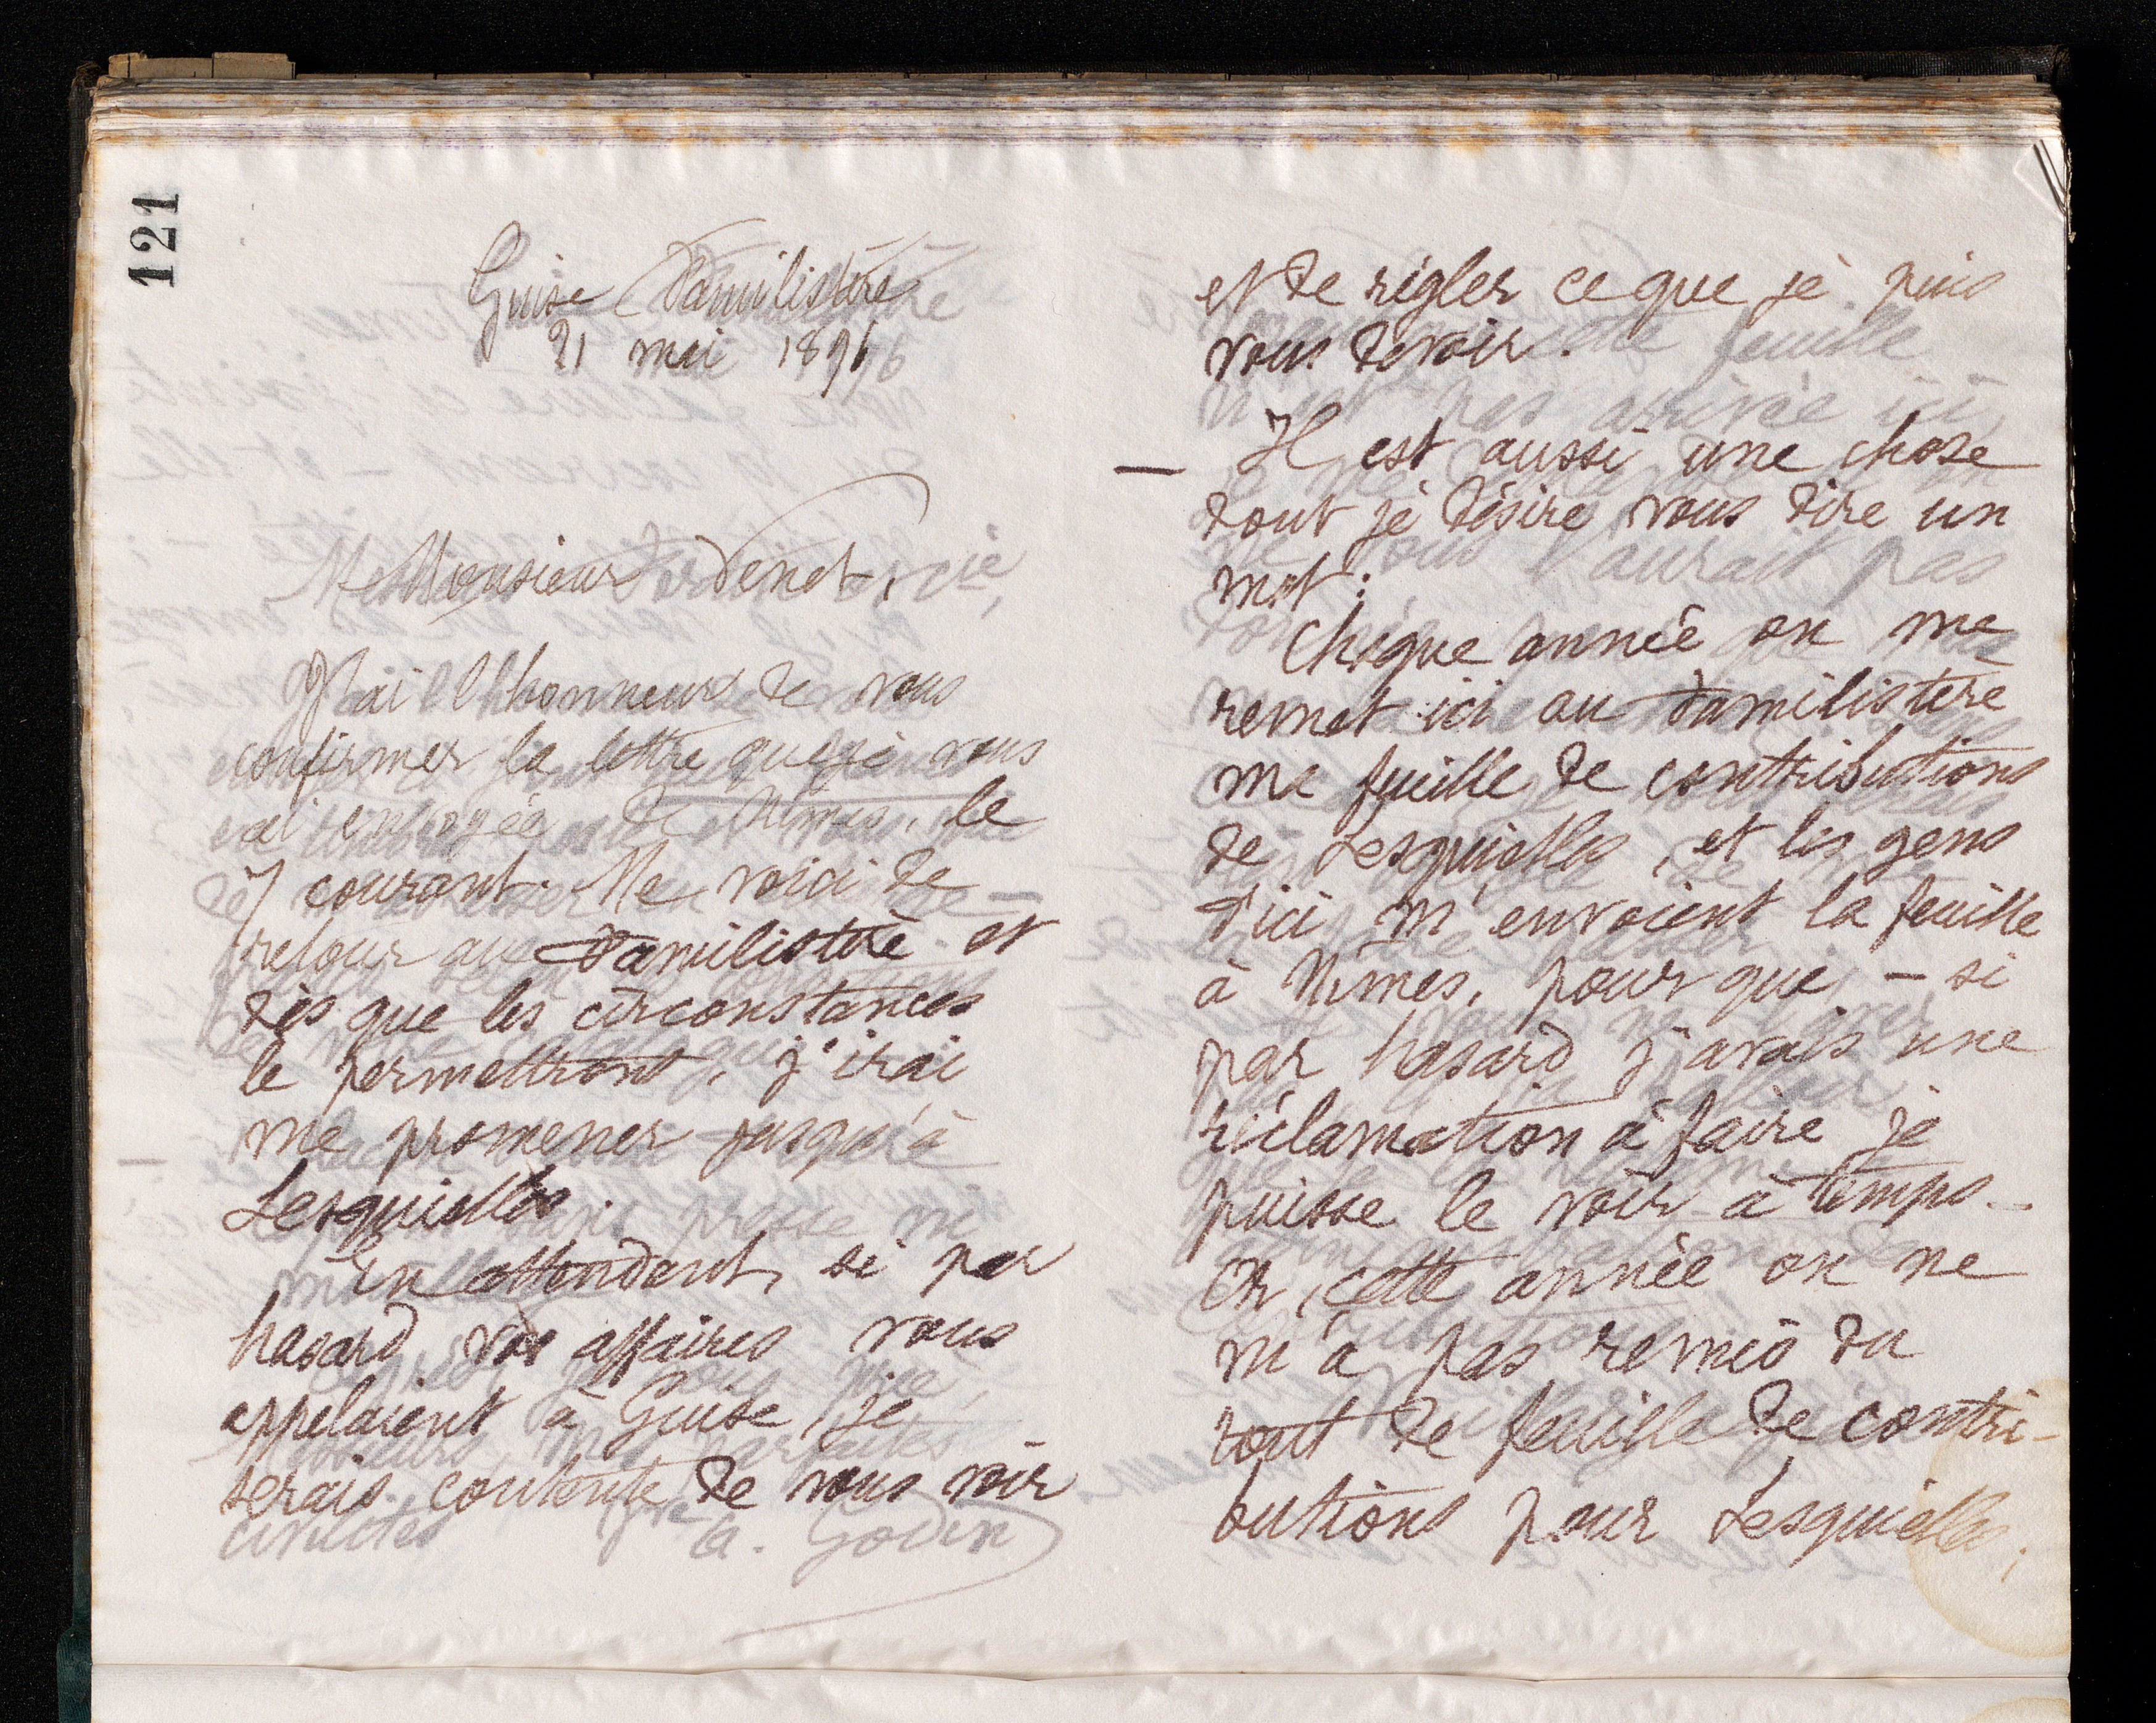 121
Guise Familistère
21 mai 1896
Monsieur Venet,
J'ai l'honneur de vous
confirmer la lettre que je vous
ai envoyée de Nîmes, le
7 courant. Me voici de
retour au Familistère et
dès que les circonstances
le permettront, j'irai
me promener jusqu'à
Lesquielles.
En attendant, si par
hasard vos affaires vous
appelaient à Guise, je
serais contente de vous voir
et de régler ce que je puis
vous devoir.
— Il est aussi une chose
dont je désire vous dire un
mot :
Chaque année on me
remet ici au Familistère
ma feuille de contributions
de Lesquielles, et les gens
d'ici m'envoient la feuille
à Nîmes, pour que, – si
par hasard j'avais une
réclamation à faire je
puisse le voir à temps –
Or, cette année on ne
m'a pas remis du
tout de feuille de contri-
butions pour Lesquielles,